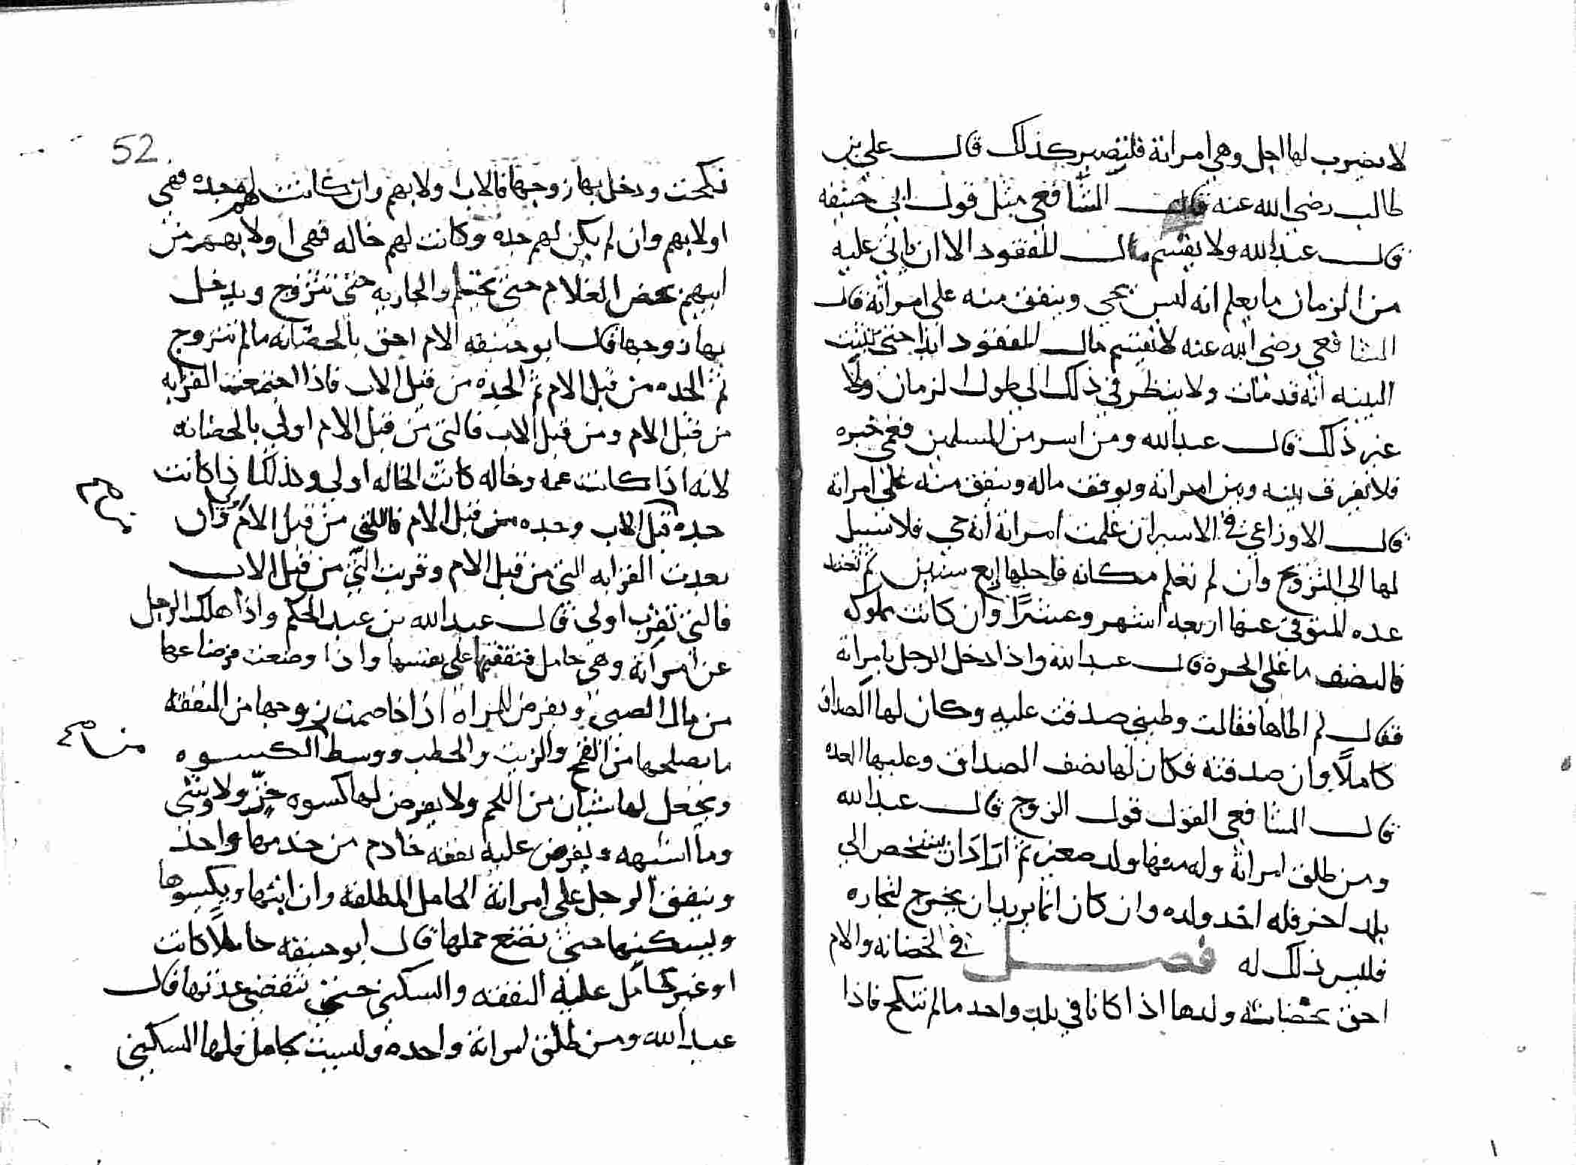 لا يضرب لها اجل وهي امراته فلتصبر كذلك قال علي بن
طالب رضي الله عنه قال الشافعي مثل قول ابي حنيفه
قال عبدالله ولا يقسم مال المفقود الا ان ياتي عليه
من الزمان ما يعلم انه ليس بحي وينفق منه على امراته قال
الشافعي رضي الله عنه لا يقسم مال المفقود ابدا حتى تثبت
البينه انه قد مات ولا ينظر في ذلك الى طول الزمان ولا
غير ذلك قال عبدالله ومن اسر من المسلمين فعمي خبره
فلا يفرق بينه وبين امراته ويوقف ماله وينفق منه على امراته
قال الاوزاعي في الاسير ان علمت امراته انه حي فلا سبيل
لها الى التزويج وان لم تعلم مكانه فاجلها اربع سنين ثم تعتد
عده المتوفى عنها اربعه اشهر وعشرًا وان كانت مملوكه
فالنصف ما على الحرة قال عبدالله واذا دخل الرجل بامراته
فقال لم اطاها فقالت وطيني صدقت عليه وكان لها الصداق
كاملًا وان صدقته فكان لها نصف الصداق وعليها العده
قال الشافعي القول قول الزوج قال عبدالله
ومن طلق امراته وله منها ولد صغير ثم اراد ان يشخص الى
بلد اخر فله اخذ ولده وان كان انما يريد ان يخرج لتجاره
فليس ذلك له فصل في الحضانه والام
احق بحضانته ولدها اذا كانا في بلد واحد مالم تنكح فاذا
52
نكحت ودخل بها زوجها فالاب اولا بهم وان كانت لهم جده فهي
اولا بهم وان لم يكن لهم جده وكانت لهم خاله فهي اولا بهم من
ابيهم بعض الغلام حتى يحتلم والجاريه حتى تتزوج ويدخل
بها زوجها قال ابو حنيفه الام احق بالحضانه مالم تتزوج
ثم الجده من قبل الام ثم الجده من قبل الاب فاذا اجتمعت القرابه
من قبل الام ومن قبل الاب فالتي من قبل الام اولى بالحضانه
لانه اذا كانت عمه وخاله كانت الخاله اولى وكذلك اذا كانت
جده قبل الاب وجده من قبل الام فاللتي من قبل الام اولى وان
بعدت القرابه التي من قبل الام وقربت التي من قبل الاب
فالتي تقرب اولى قال عبدالله بن عبد الحكم واذا هلك الرجل
عن امراته وهي حامل فنفقتها على نفسها واذا وضعت فرضاعها
من مال الصبي ويفرض للمراه اذا خاصمت زوجها من النفقه
ما يصلحها من القمح والزيت والحطب ووسط الكسوه
ويجعل لها شيان من اللحم ولا يفرض لها كسوه خزّ ولا وشي
وما اشبهه ويفرض عليه نفقه خادم من خدمها واحد
وينفق الرجل على امراته الحامل المطلقه وان ابتها ويكسوها
ويسكنها حتى تضع حملها قال ابو حنيفه حاملًا كانت
او غير حامل عليه النفقه والسكنى حتى تنقضي عدتها قال
عبدالله ومن طلق امراته واحده وليست بحامل فلها السكنى